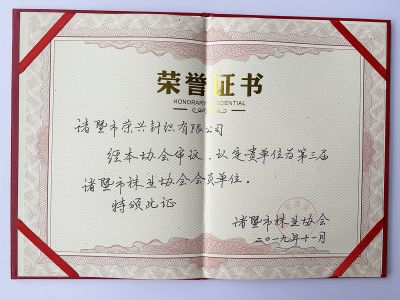 荣誉证书
HONORARY CREDENTIAL
诸暨市荣兴针织有限公司
经本协会审议，认定贵单位为第三届
诸暨市袜业协会会员单位。
特颁此证
诸暨市袜业协会
二〇一九年十一月